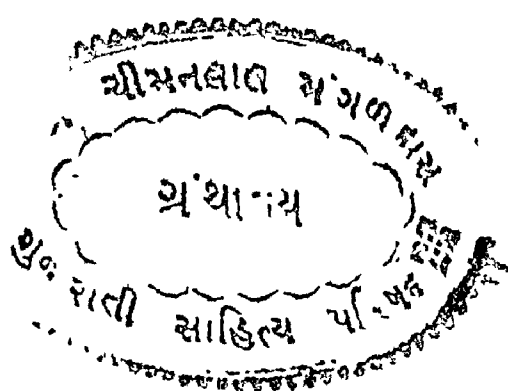 ચીમનલાલ મંગળદાસ
ગ્રંથાલય
ગુજરાતી સાહિત્ય પરિષદ